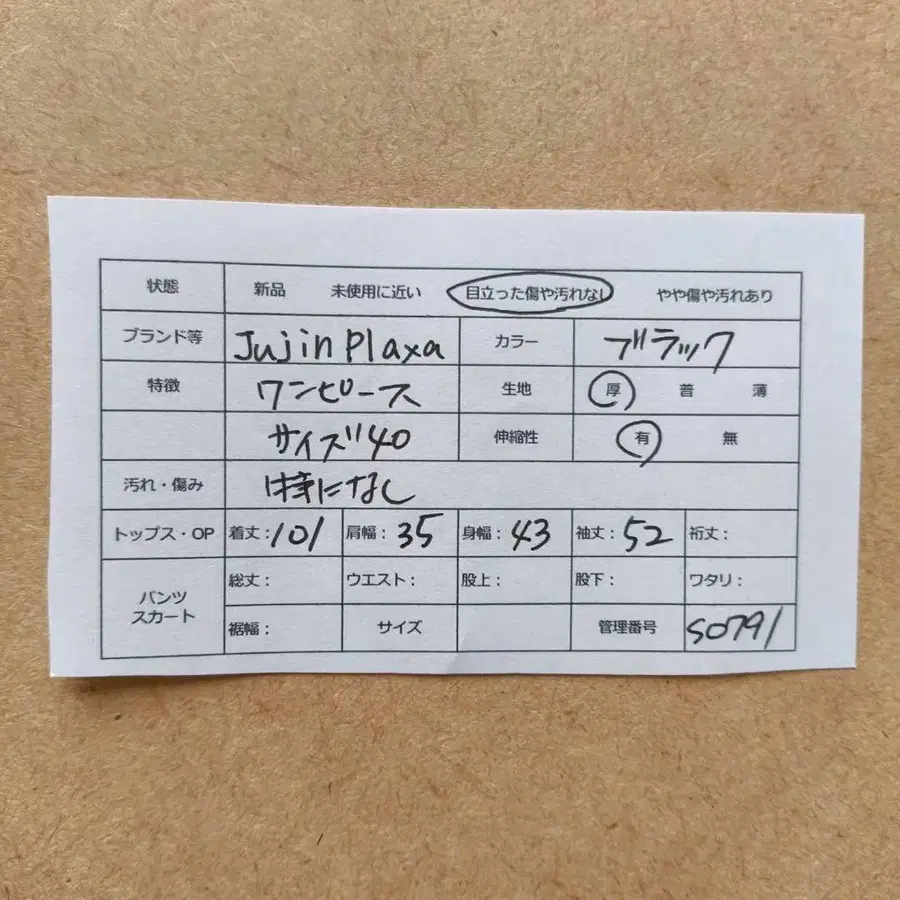 状態 新品 未使用に近い 目立った傷や汚れなし やや傷や汚れあり
ブランド等 Jujin Plaxa カラー ブラック
特徴 ワンピース 生地 厚 普 薄
サイズ40 伸縮性 有 無
汚れ・傷み 特になし
トップス・OP 着丈：101 肩幅：35 身幅：43 袖丈：52 裄丈：
パンツ
スカート
総丈： ウエスト： 股上： 股下： ワタリ：
裾幅： サイズ 管理番号 S0791